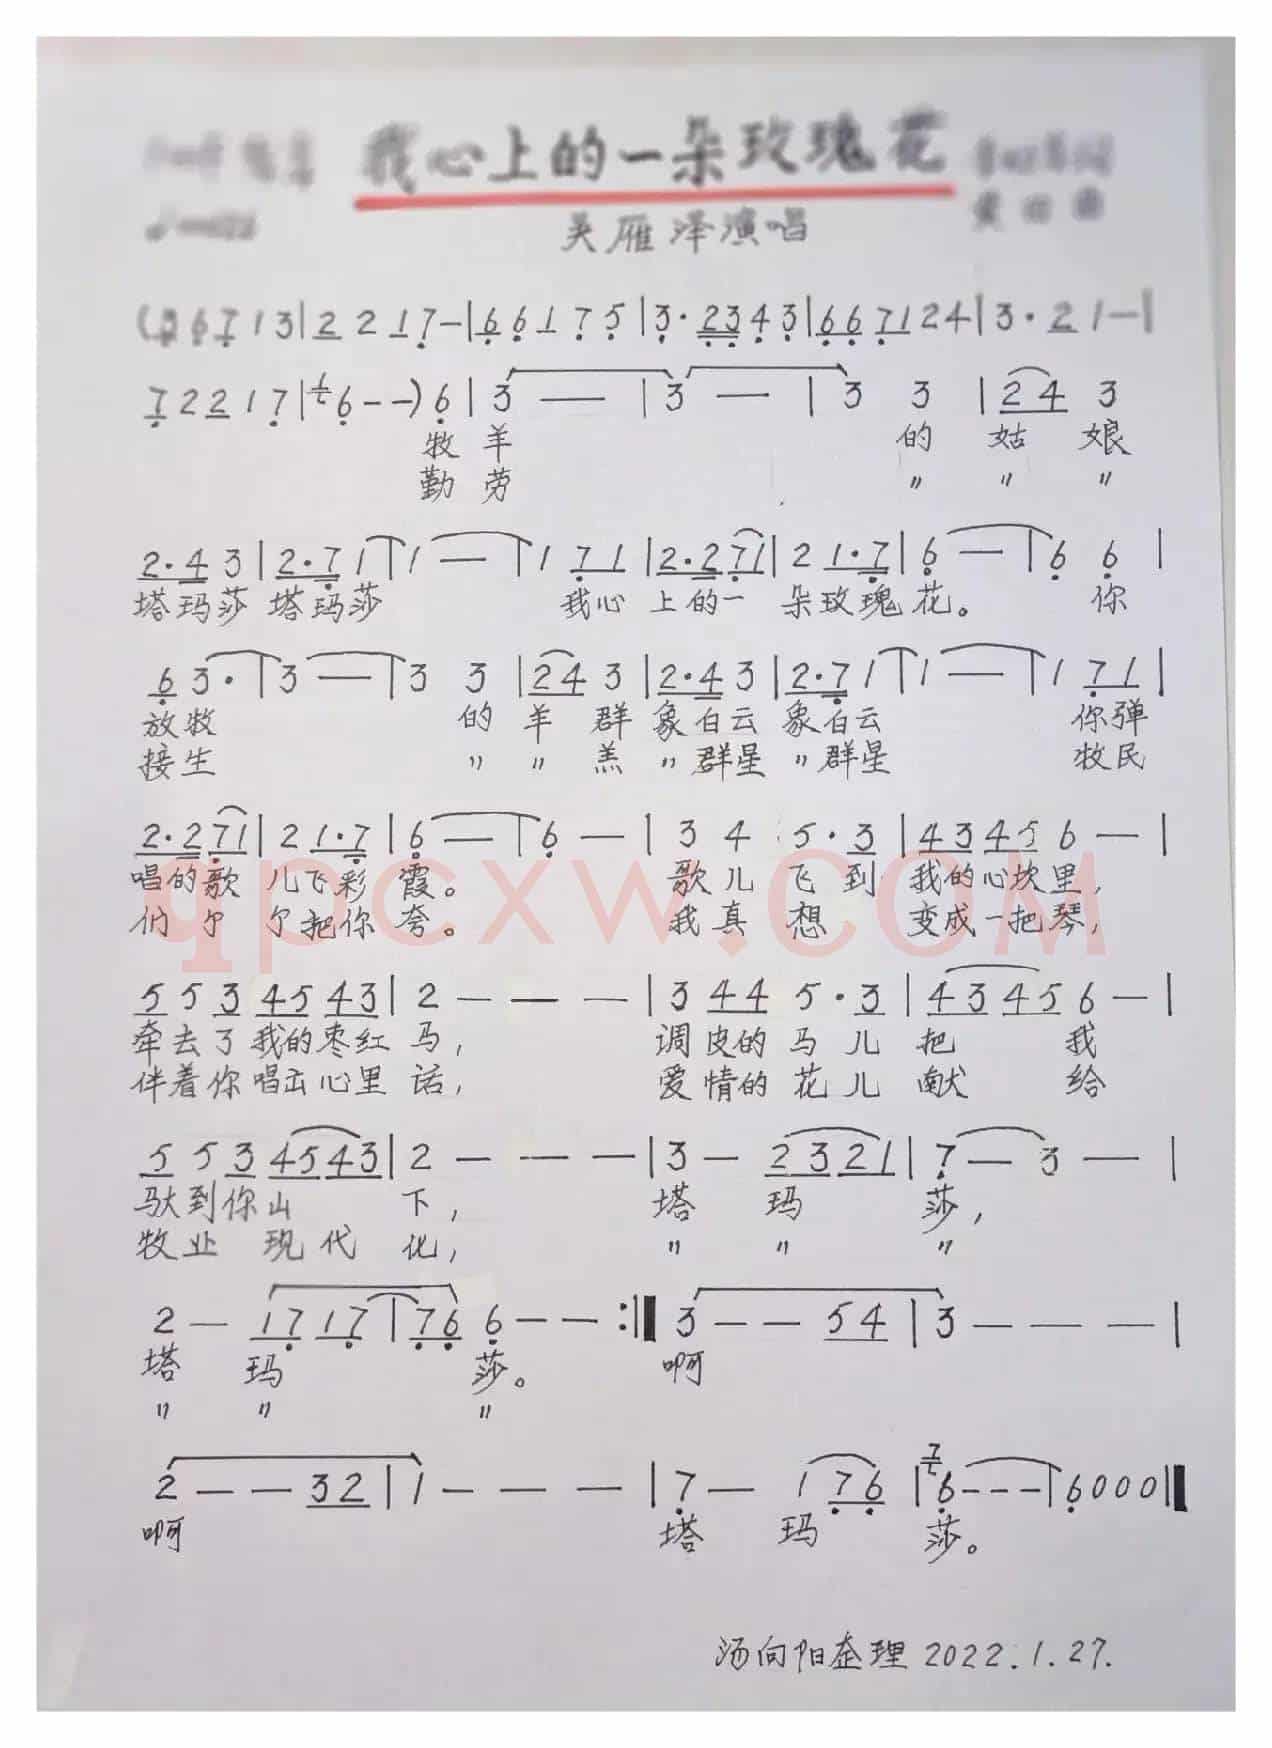 我心上的一朵玫瑰花
吴雁泽演唱
(3 6 7 1 3 | 2 2 1 7 - | 6 6 1 7 5 | 3 · 2 3 4 3 | 6 6 7 1 2 4 | 3 · 2 1 - |
7 2 2 1 7 | 1 6 - -) 6 | 3 - | 3 - | 3 3 | 2 4 3
牧 羊 的 姑 娘
勤 劳 〃 〃 〃
2 · 4 3 | 2 · 7 1 | 1 - | 1 7 1 | 2 · 2 7 1 | 2 1 · 7 | 6 - | 6 6 |
塔玛莎 塔玛莎 我心 上的一 朵玫瑰花。 你
6 3 · | 3 - | 3 3 | 2 4 3 | 2 · 4 3 | 2 · 7 1 | 1 - | 1 7 1 |
放牧 的 羊 群 象白云 象白云 你弹
接生 〃 〃 羔 〃群星 〃群星 牧民
2 · 2 7 1 | 2 1 · 7 | 6 - | 6 - | 3 4 5 · 3 | 4 3 4 5 6 - |
唱的歌 儿飞彩 霞。 歌儿 飞到 我的心坎里,
们尔 尔把你夸。 我真 想 变成一把琴,
5 5 3 4 5 4 3 | 2 - - - | 3 4 4 5 · 3 | 4 3 4 5 6 - |
牵去了我的枣红 马, 调皮的马儿 把 我
伴着你唱出心里 话, 爱情的花儿 献 给
5 5 3 4 5 4 3 | 2 - - - | 3 - 2 3 2 1 | 7 - 3 - |
驮到你山 下, 塔 玛 莎,
牧业 现代 化, 〃 〃 〃
2 - 1 7 1 7 | 7 6 6 - - :| 3 - - 5 4 | 3 - - - |
塔 玛 莎。 啊
〃 〃 〃
2 - - 3 2 | 1 - - - | 7 - 1 7 6 | 7 6 - - - | 6 0 0 0 |
啊 塔 玛 莎。
qpcxw.com
汤向阳整理 2022.1.27.